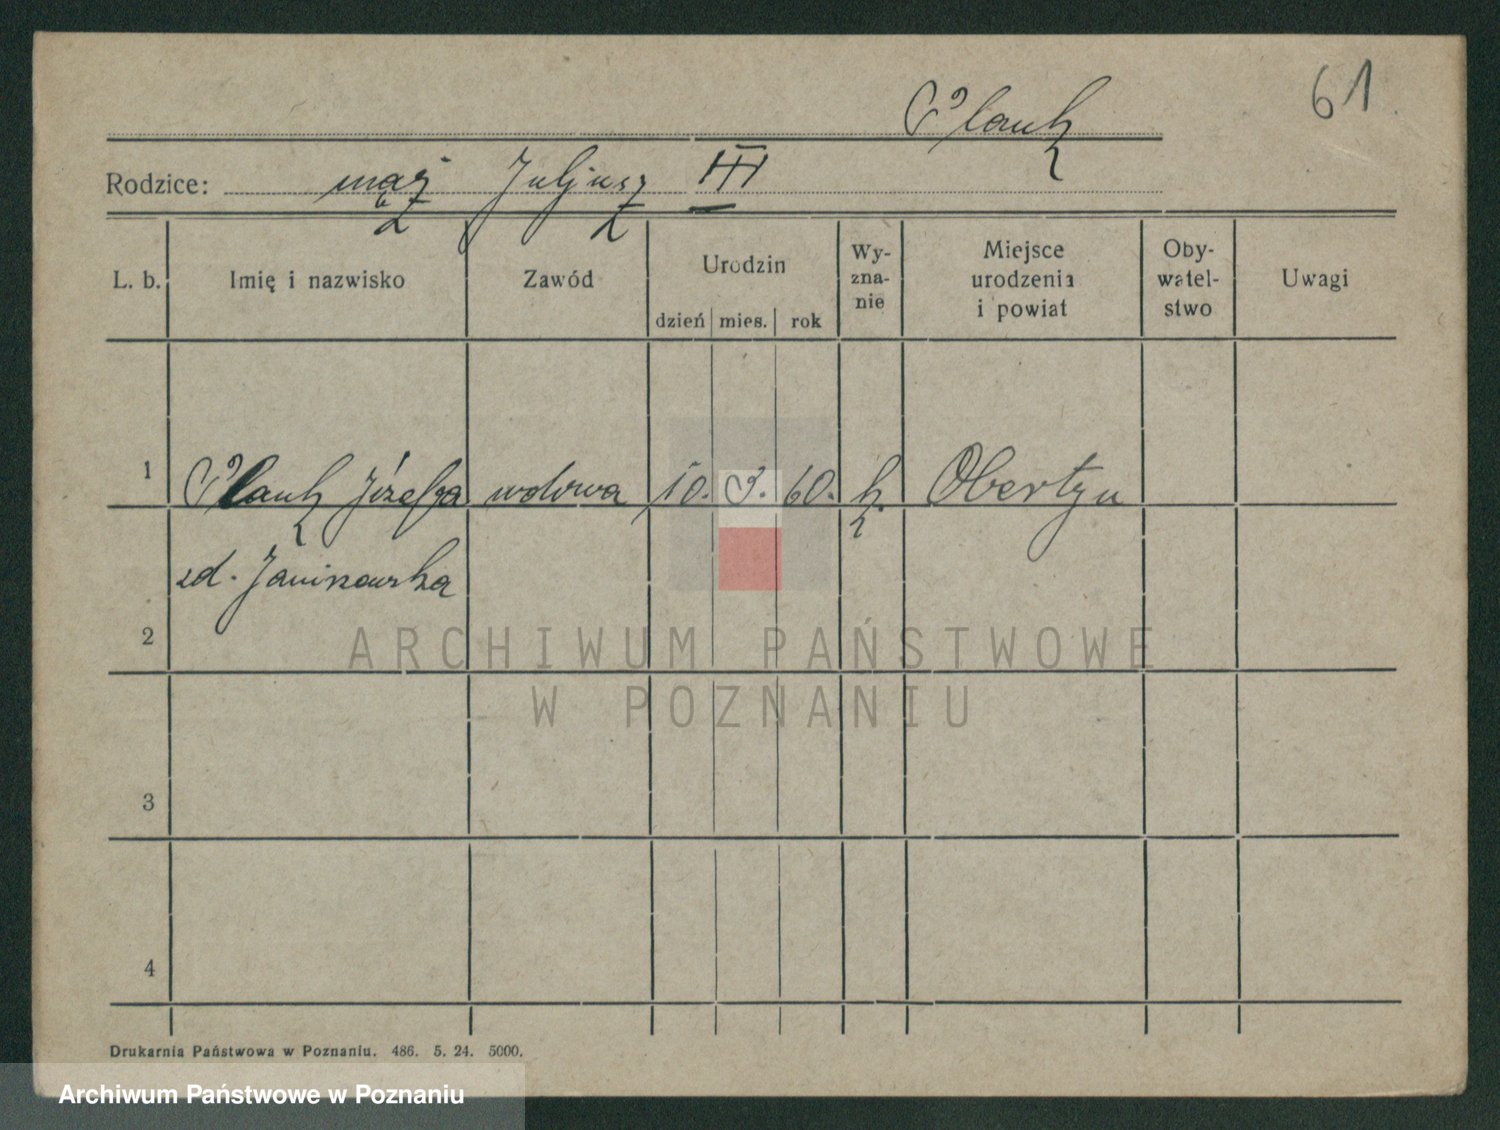 61
Plauk
Rodzice: mąż Juljusz III
L. b. Imię i nazwisko Zawód Urodzin dzień mies. rok Wy-zna-nie Miejsce urodzenia i powiat Oby-watel-stwo Uwagi
1 Józefa wdowa 10. 60. k. Obertyn
zd. Janiszewska
2
3
4
Drukarnia Państwowa w Poznaniu. 486. 5. 24. 5000.
ARCHIWUM PAŃSTWOWE
W POZNANIU
Archiwum Państwowe w Poznaniu